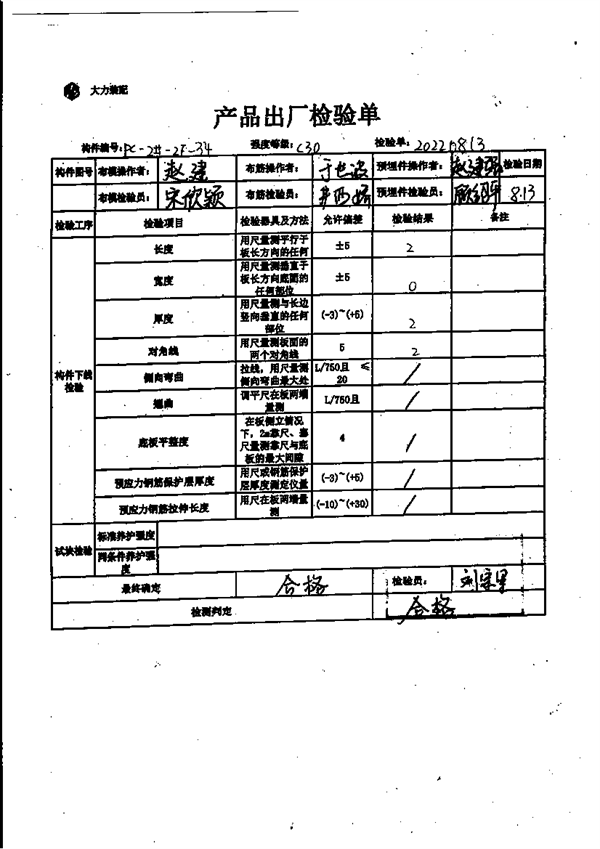 大力装配
产品出厂检验单
构件编号: PC-2#-2F-34 强度等级: C30 检验单: 20220813
构件图号 布模操作者: 赵建 布筋操作者: 预埋件操作者: 赵建强 检验日期
布模检验员: 宋欣颖 布筋检验员: 预埋件检验员: 8.13
检验工序 检验项目 检验器具及方法 允许偏差 检验结果 备注
构件下线检验
长度 用尺量测平行于板长方向的任何 ±5 2
宽度 用尺量测垂直于板长方向底面的任何部位 ±5 0
厚度 用尺量测与长边竖向垂直的任何部位 (-3)~(+5) 2
对角线 用尺量测板面的两个对角线 5 2
侧向弯曲 拉线,用尺量测侧向弯曲最大处 L/750且 ≤20 /
翘曲 调平尺在板两端量测 L/750且 /
底板平整度 在板侧立情况下,2m靠尺、塞尺量测靠尺与底板的最大间隙 4 /
预应力钢筋保护层厚度 用尺或钢筋保护层厚度测定仪量 (-3)~(+5) /
预应力钢筋拉伸长度 用尺在板两端量测 (-10)~(+30) /
试块检验 标准养护强度
同条件养护强度
最终确定 合格 检验员:
检测判定 合格